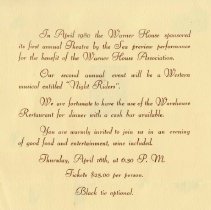 In April 1980 the Warner House sponsored
its first annual Theatre by the Sea preview performance
for the benefit of the Warner House Association.
Our second annual event will be a Western
musical entitled "Night Riders".
We are fortunate to have the use of the Warehouse
Restaurant for dinner with a cash bar available.
You are warmly invited to join us in an evening
of good food and entertainment, wine included.
Thursday, April 16th, at 6:30 P. M.
Tickets $25.00 per person.
Black tie optional.